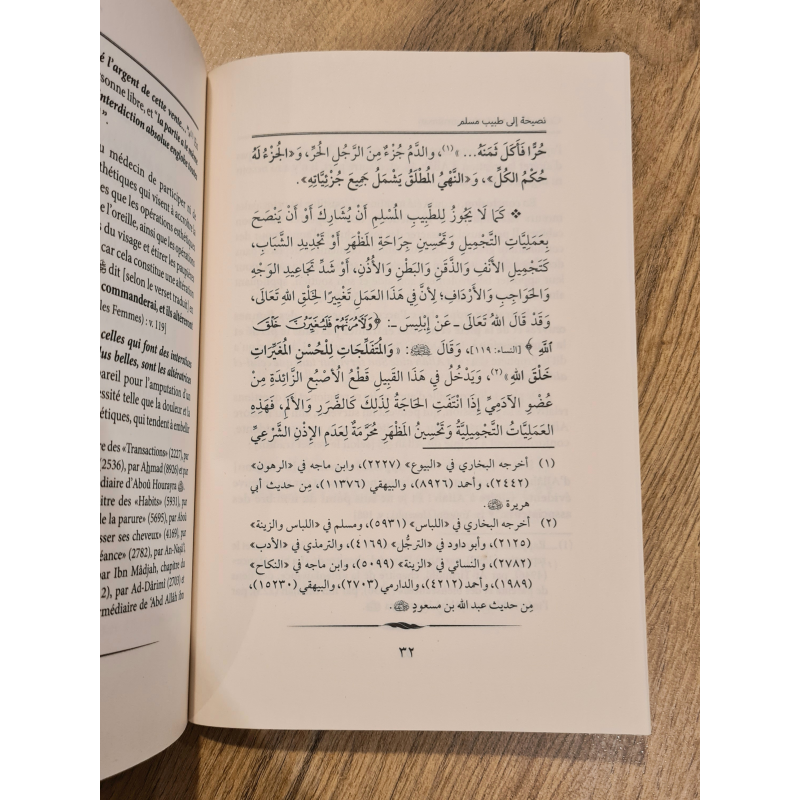 é l'argent de cette vente..."
rsonne libre, et "la partie a le même
interdiction absolue englobe toutes
u médecin de participer ni de
thétiques qui visent à accroître la
es que les opérations esthétiques
l'oreille, ainsi que les opérations
s du visage et étirer les paupières
car cela constitue une altération
dit [selon le verset traduit]
commanderai, et ils altèreront
les Femmes) : v. 119]
celles qui font des interstices
lus belles, sont les altératrices
pareil pour l'amputation d'un
essité telle que la douleur et la
étiques, qui tendent à embellir
re des «Transactions» (2227), par
(2536), par Aḥmad (8926) et par
médiaire d'Aboû Hourayra
itre des «Habits» (5931), par
de la parure» (5695), par Aboû
sser ses cheveux» (4169), par
éance» (2782), par An-Nasâ'î
par Ibn Mâdjah, chapitre du
2), par Ad-Dârimî (2703) et
rmédiaire de 'Abd Allâh ibn
نصيحة إلى طبيب مسلم
حُرًّا فَأَكَلَ ثَمَنَهُ... »(١)، والدَّمُ جُزْءٌ مِنَ الرَّجُلِ الْحُرِّ، وَ«الْجُزْءُ لَهُ
حُكْمُ الْكُلِّ»، وَ«النَّهْيُ الْمُطْلَقُ يَشْمَلُ جَمِيعَ جُزْئِيَّاتِهِ».
❖ كَمَا لَا يَجُوزُ لِلطَّبِيبِ الْمُسْلِمِ أَنْ يُشَارِكَ أَوْ أَنْ يَنْصَحَ
بِعَمَلِيَّاتِ التَّجْمِيلِ وَتَحْسِينِ جِرَاحَةِ الْمَظْهَرِ أَوْ تَجْدِيدِ الشَّبَابِ،
كَتَجْمِيلِ الْأَنْفِ وَالذَّقَنِ وَالْبَطْنِ وَالْأُذُنِ، أَوْ شَدِّ تَجَاعِيدِ الْوَجْهِ
وَالْحَوَاجِبِ وَالْأَرْدَافِ؛ لِأَنَّ فِي هَذَا الْعَمَلِ تَغْيِيرًا لِخَلْقِ اللهِ تَعَالَى،
وَقَدْ قَالَ اللهُ تَعَالَى ـ عَنْ إِبْلِيسَ ـ: ﴿وَلَآمُرَنَّهُمْ فَلَيُغَيِّرُنَّ خَلْقَ
اللَّهِ ﴾ [النساء: ١١٩]، وَقَالَ ﷺ: «وَالْمُتَفَلِّجَاتِ لِلْحُسْنِ الْمُغَيِّرَاتِ
خَلْقَ اللهِ»(٢)، وَيَدْخُلُ فِي هَذَا الْقَبِيلِ قَطْعُ الْأُصْبُعِ الزَّائِدَةِ مِنْ
عُضْوِ الْآدَمِيِّ إِذَا انْتَفَتِ الْحَاجَةُ لِذَلِكَ كَالضَّرَرِ وَالْأَلَمِ، فَهَذِهِ
الْعَمَلِيَّاتُ التَّجْمِيلِيَّةُ وَتَحْسِينُ الْمَظْهَرِ مُحَرَّمَةٌ لِعَدَمِ الْإِذْنِ الشَّرْعِيِّ
(١) أخرجه البخاري في «البيوع» (٢٢٢٧)، وابن ماجه في «الرهون»
(٢٤٤٢)، وأحمد (٨٩٢٦)، والبيهقي (١١٣٧٦)، مِن حديث أبي
هريرة ﵁.
(٢) أخرجه البخاري في «اللباس» (٥٩٣١)، ومسلم في «اللباس والزينة»
(٢١٢٥)، وأبو داود في «الترجُّل» (٤١٦٩)، والترمذي في «الأدب»
(٢٧٨٢)، والنسائي في «الزينة» (٥٠٩٩)، وابن ماجه في «النكاح»
(١٩٨٩)، وأحمد (٤٢١٢)، والدارمي (٢٧٠٣)، والبيهقي (١٥٢٣٠)،
مِن حديث عبد الله بن مسعودٍ ﵁.
٣٢